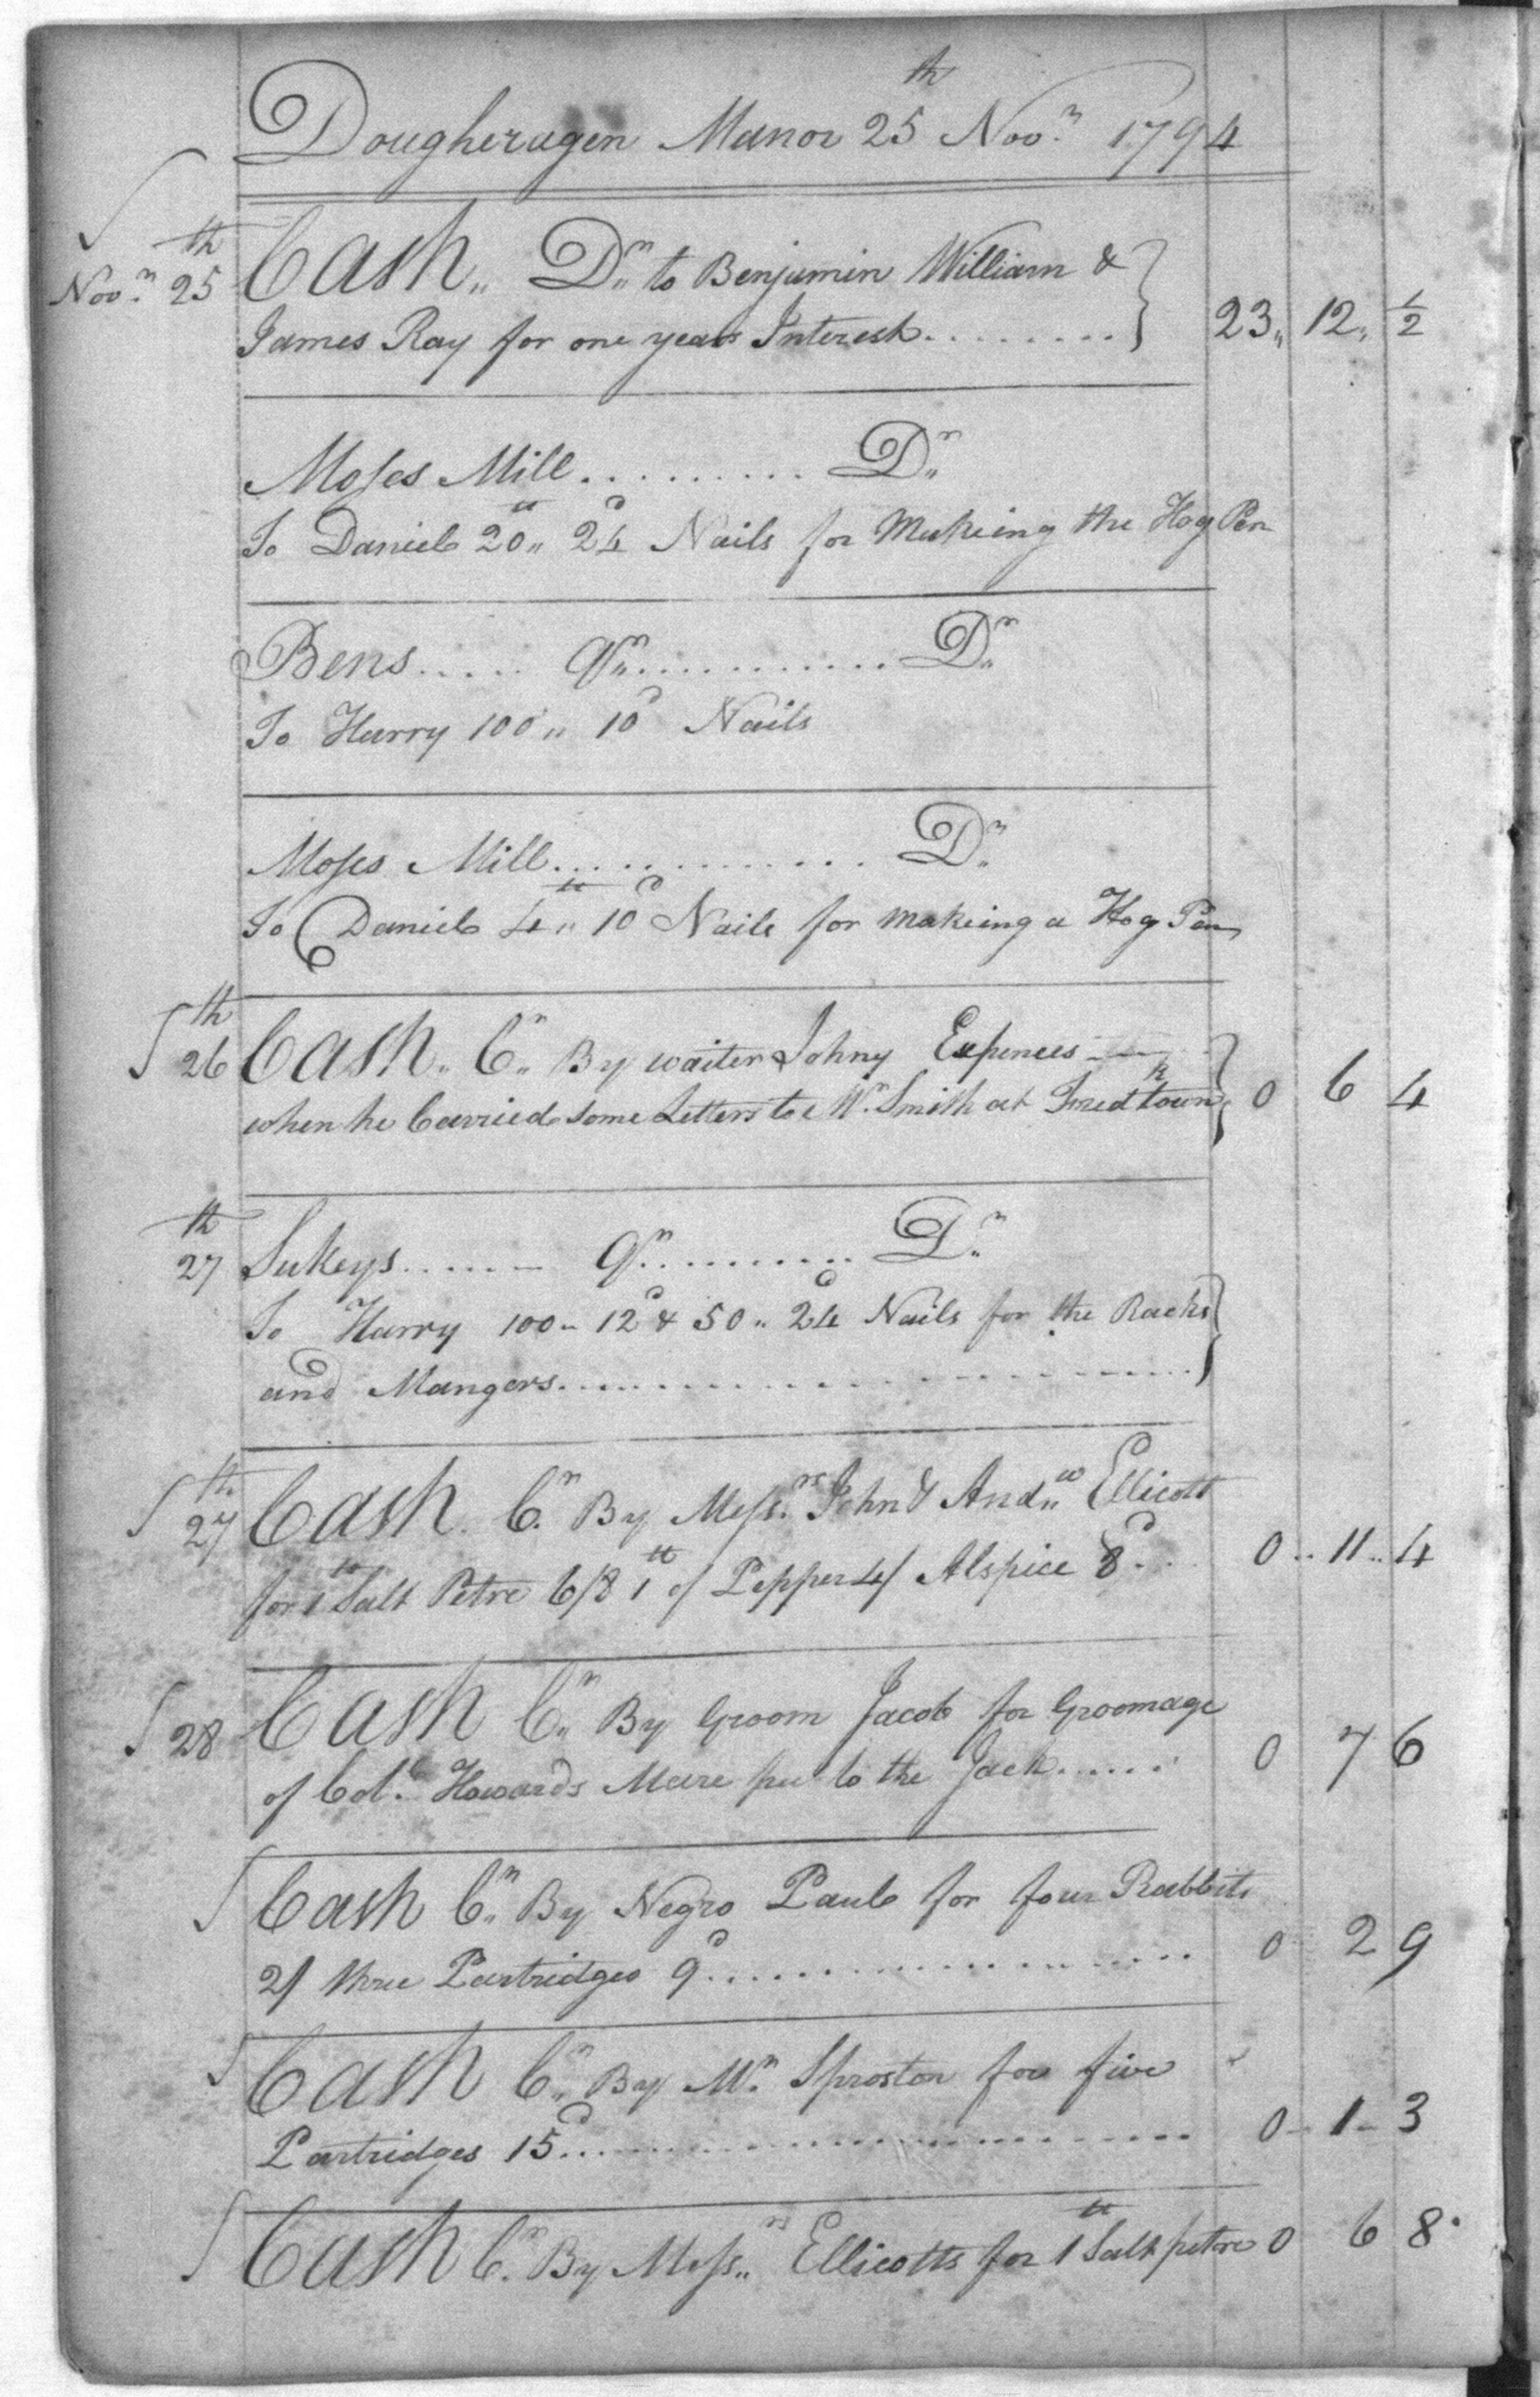 Dougheragen Manor 25th Novr 1794
Novr 25th Cash,, Dr to Benjamin William &
James Ray for one years Interest......... 23,, 12,, 1/2
Moses Mill.......... Dr
To Daniel 20lb,, 24d Nails for Makeing the Hog Pen
Bens..... Qr............ Dr
To Harry 100,, 10d Nails
Moses Mill............. Dr
To Daniel 4lb,, 10d Nails for makeing a Hog Pen
26th Cash,, Cr By waiter Johny Expences
when he Carried some Letters to Mr Smith at Fredk town 0 6 4
27th Sukeys...... Qr......... Dr
To Harry 100,, 12d & 50,, 24d Nails for the Racks
and Mangers...................
27th Cash. Cr By Messrs John & Andw Ellicott
for 1lb Salt Petre 6/8 1lb of Pepper 4/ Alspice 8d... 0..11..4
28 Cash Cr By Groom Jacob for Groomage
of Coll Howards Mare put to the Jack...... 0 7 6
Cash Cr By Negro Paul for four Rabbits
2/ three Partridges 9d................ 0 2 9
Cash Cr By Mr Sproston for five
Partridges 15d.................... 0-1-3
Cash Cr By Messrs Ellicotts for 1lb Salt petre 0 6 8